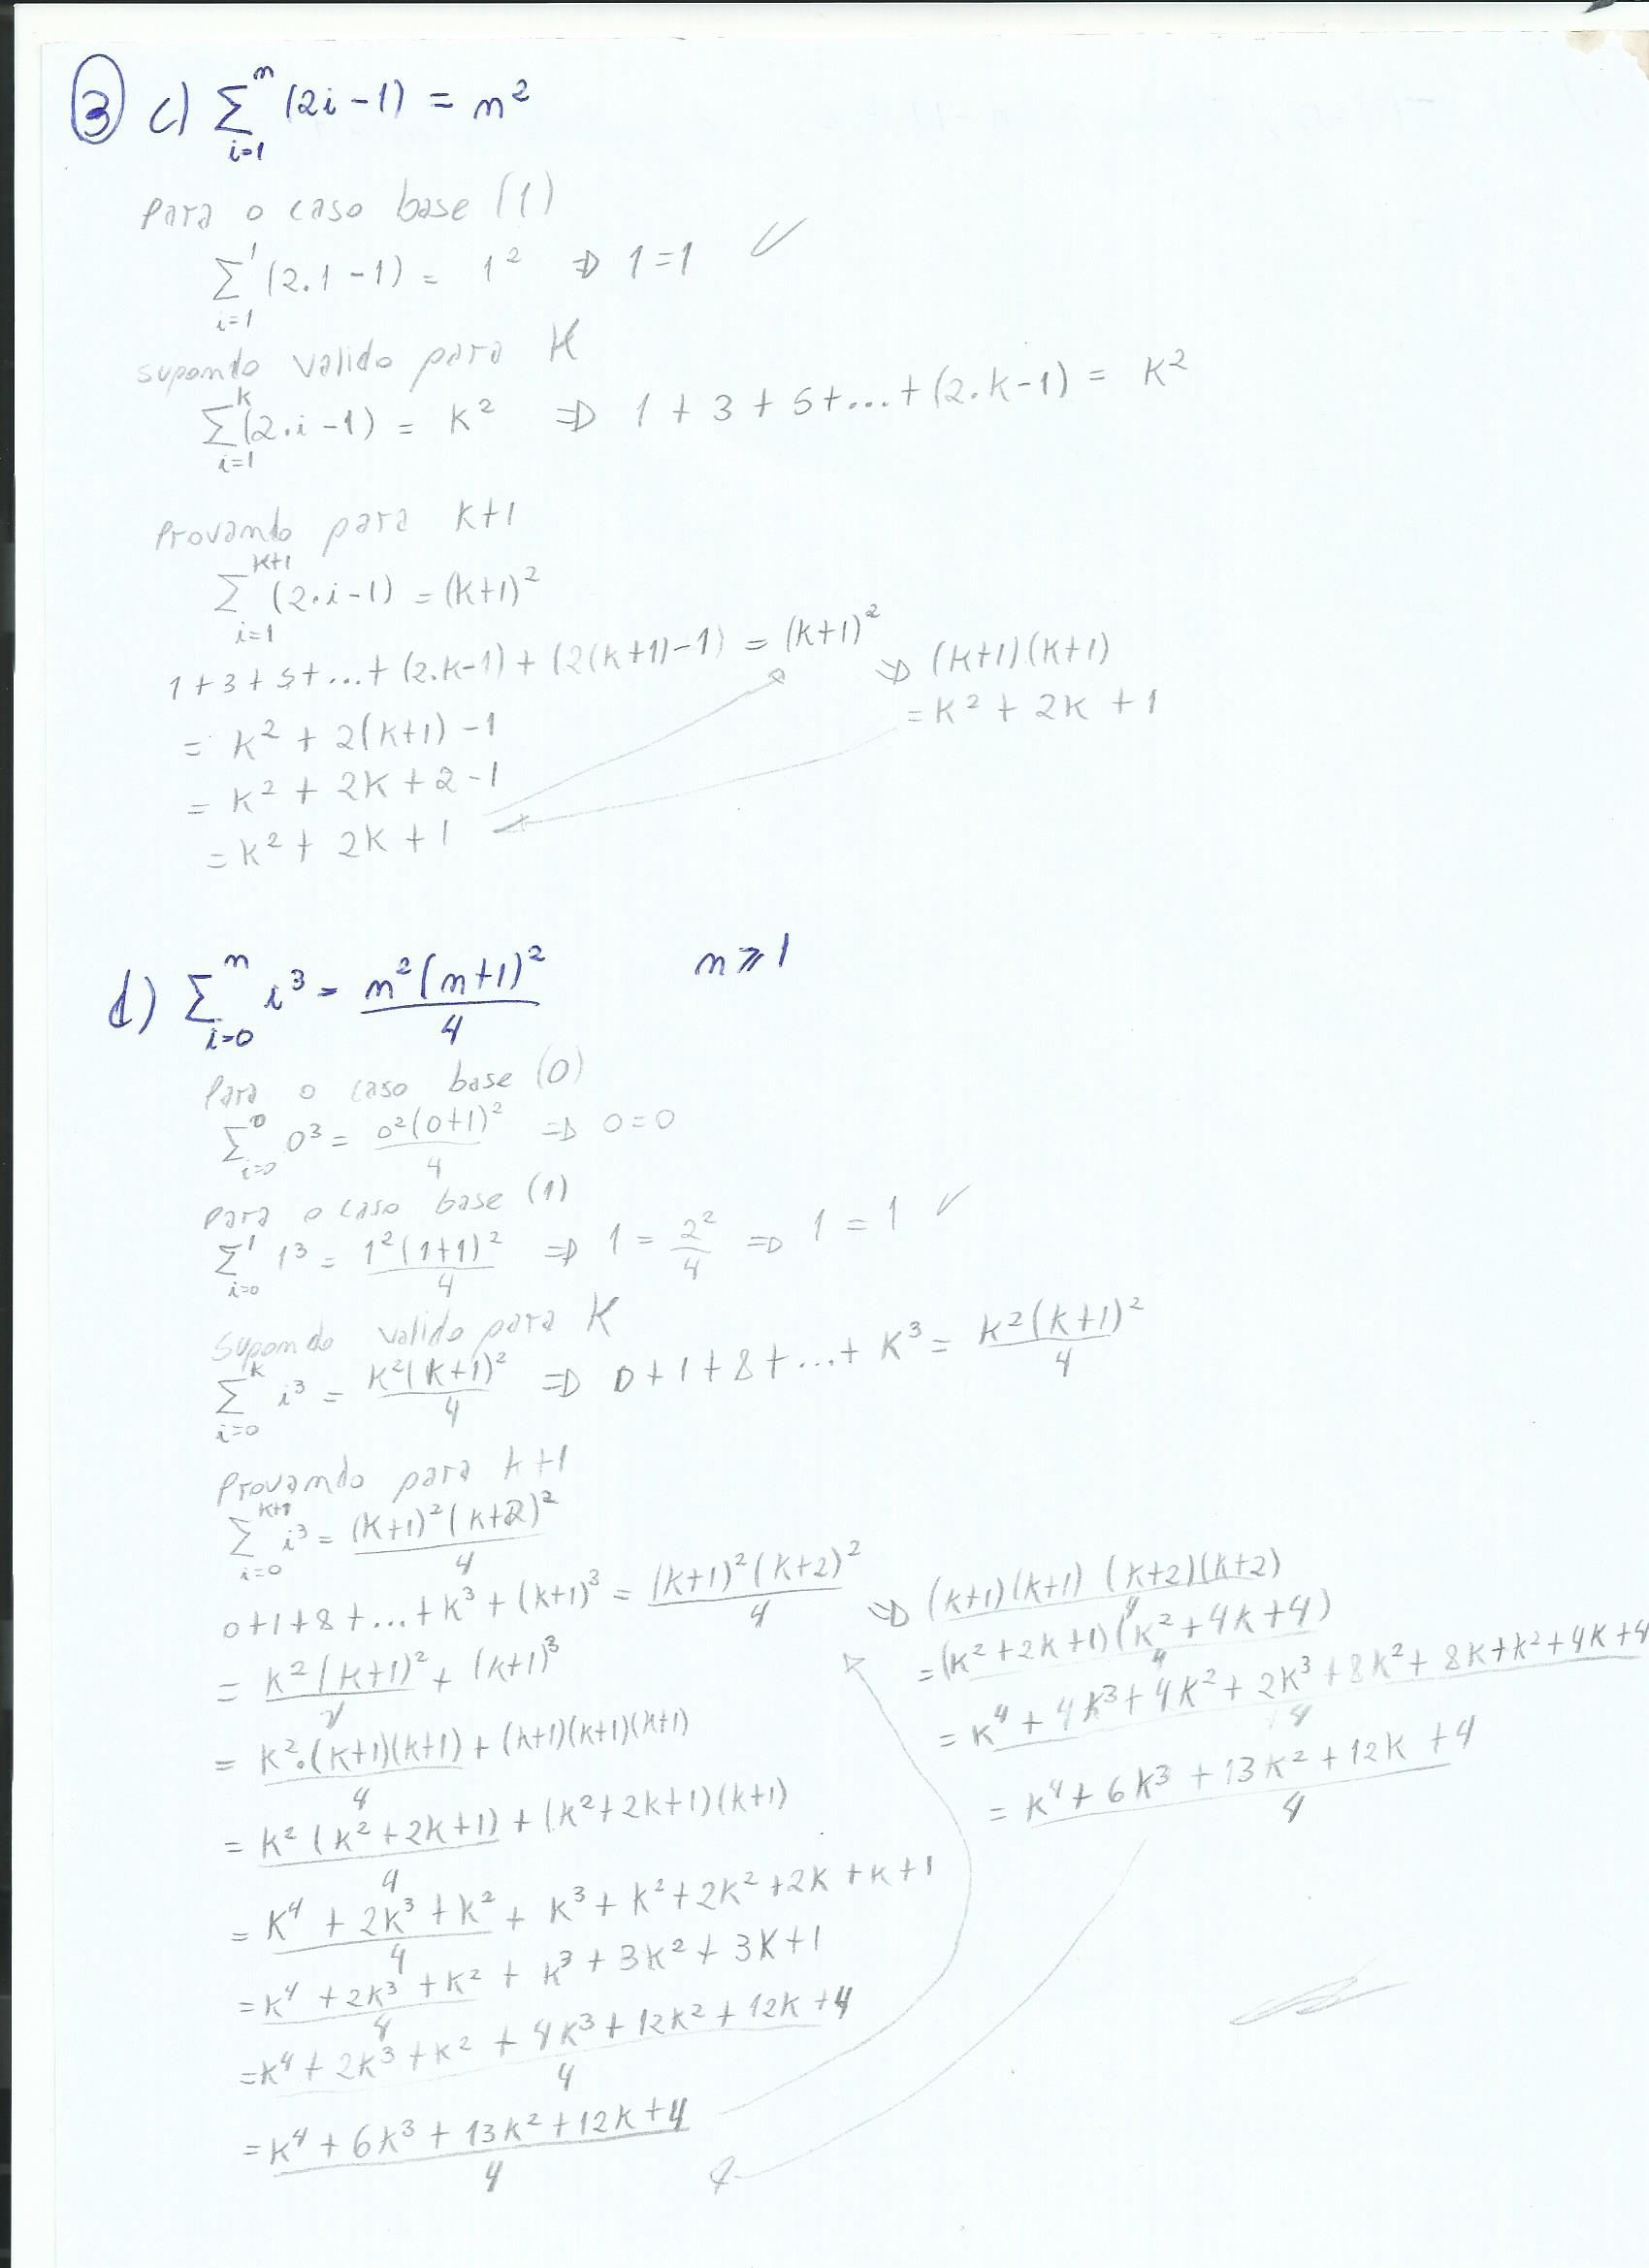 3 c) ∑_{i=1}^{n} (2i-1) = n²
Para o caso base (1)
∑_{i=1}^{1} (2.1-1) = 1² ⇒ 1=1 ✓
supondo valido para K
∑_{i=1}^{k} (2.i-1) = K² ⇒ 1+3+5+...+(2.k-1) = K²
Provando para k+1
∑_{i=1}^{k+1} (2.i-1) = (k+1)²
1+3+5+...+(2.k-1)+(2(k+1)-1) = (k+1)² ⇒ (k+1)(k+1)
= k² + 2k + 1
= k² + 2(k+1) - 1
= k² + 2k + 2 - 1
= k² + 2k + 1
d) ∑_{i=0}^{n} i³ = n²(n+1)²/4 n ⩾ 1
Para o caso base (0)
∑_{i=0}^{0} 0³ = 0²(0+1)²/4 ⇒ 0=0
para o caso base (1)
∑_{i=0}^{1} 1³ = 1²(1+1)²/4 ⇒ 1 = 2²/4 ⇒ 1 = 1 ✓
Supondo valido para K
∑_{i=0}^{k} i³ = k²(k+1)²/4 ⇒ 0+1+8+...+K³ = k²(k+1)²/4
Provando para k+1
∑_{i=0}^{k+1} i³ = (k+1)²(k+2)²/4
0+1+8+...+k³+(k+1)³ = (k+1)²(k+2)²/4 ⇒ (k+1)(k+1)(k+2)(k+2)/4
= (k²+2k+1)(k²+4k+4)/4
= k⁴+4k³+4k²+2k³+8k²+8k+k²+4k+4/4
= k⁴+6k³+13k²+12k+4/4
= k²(k+1)²/4 + (k+1)³
= k².(k+1)(k+1)/4 + (k+1)(k+1)(k+1)
= k²(k²+2k+1)/4 + (k²+2k+1)(k+1)
= k⁴+2k³+k²/4 + k³+k²+2k²+2k+k+1
= k⁴+2k³+k²/4 + k³+3k²+3k+1
= k⁴+2k³+k²+4k³+12k²+12k+4/4
= k⁴+6k³+13k²+12k+4/4